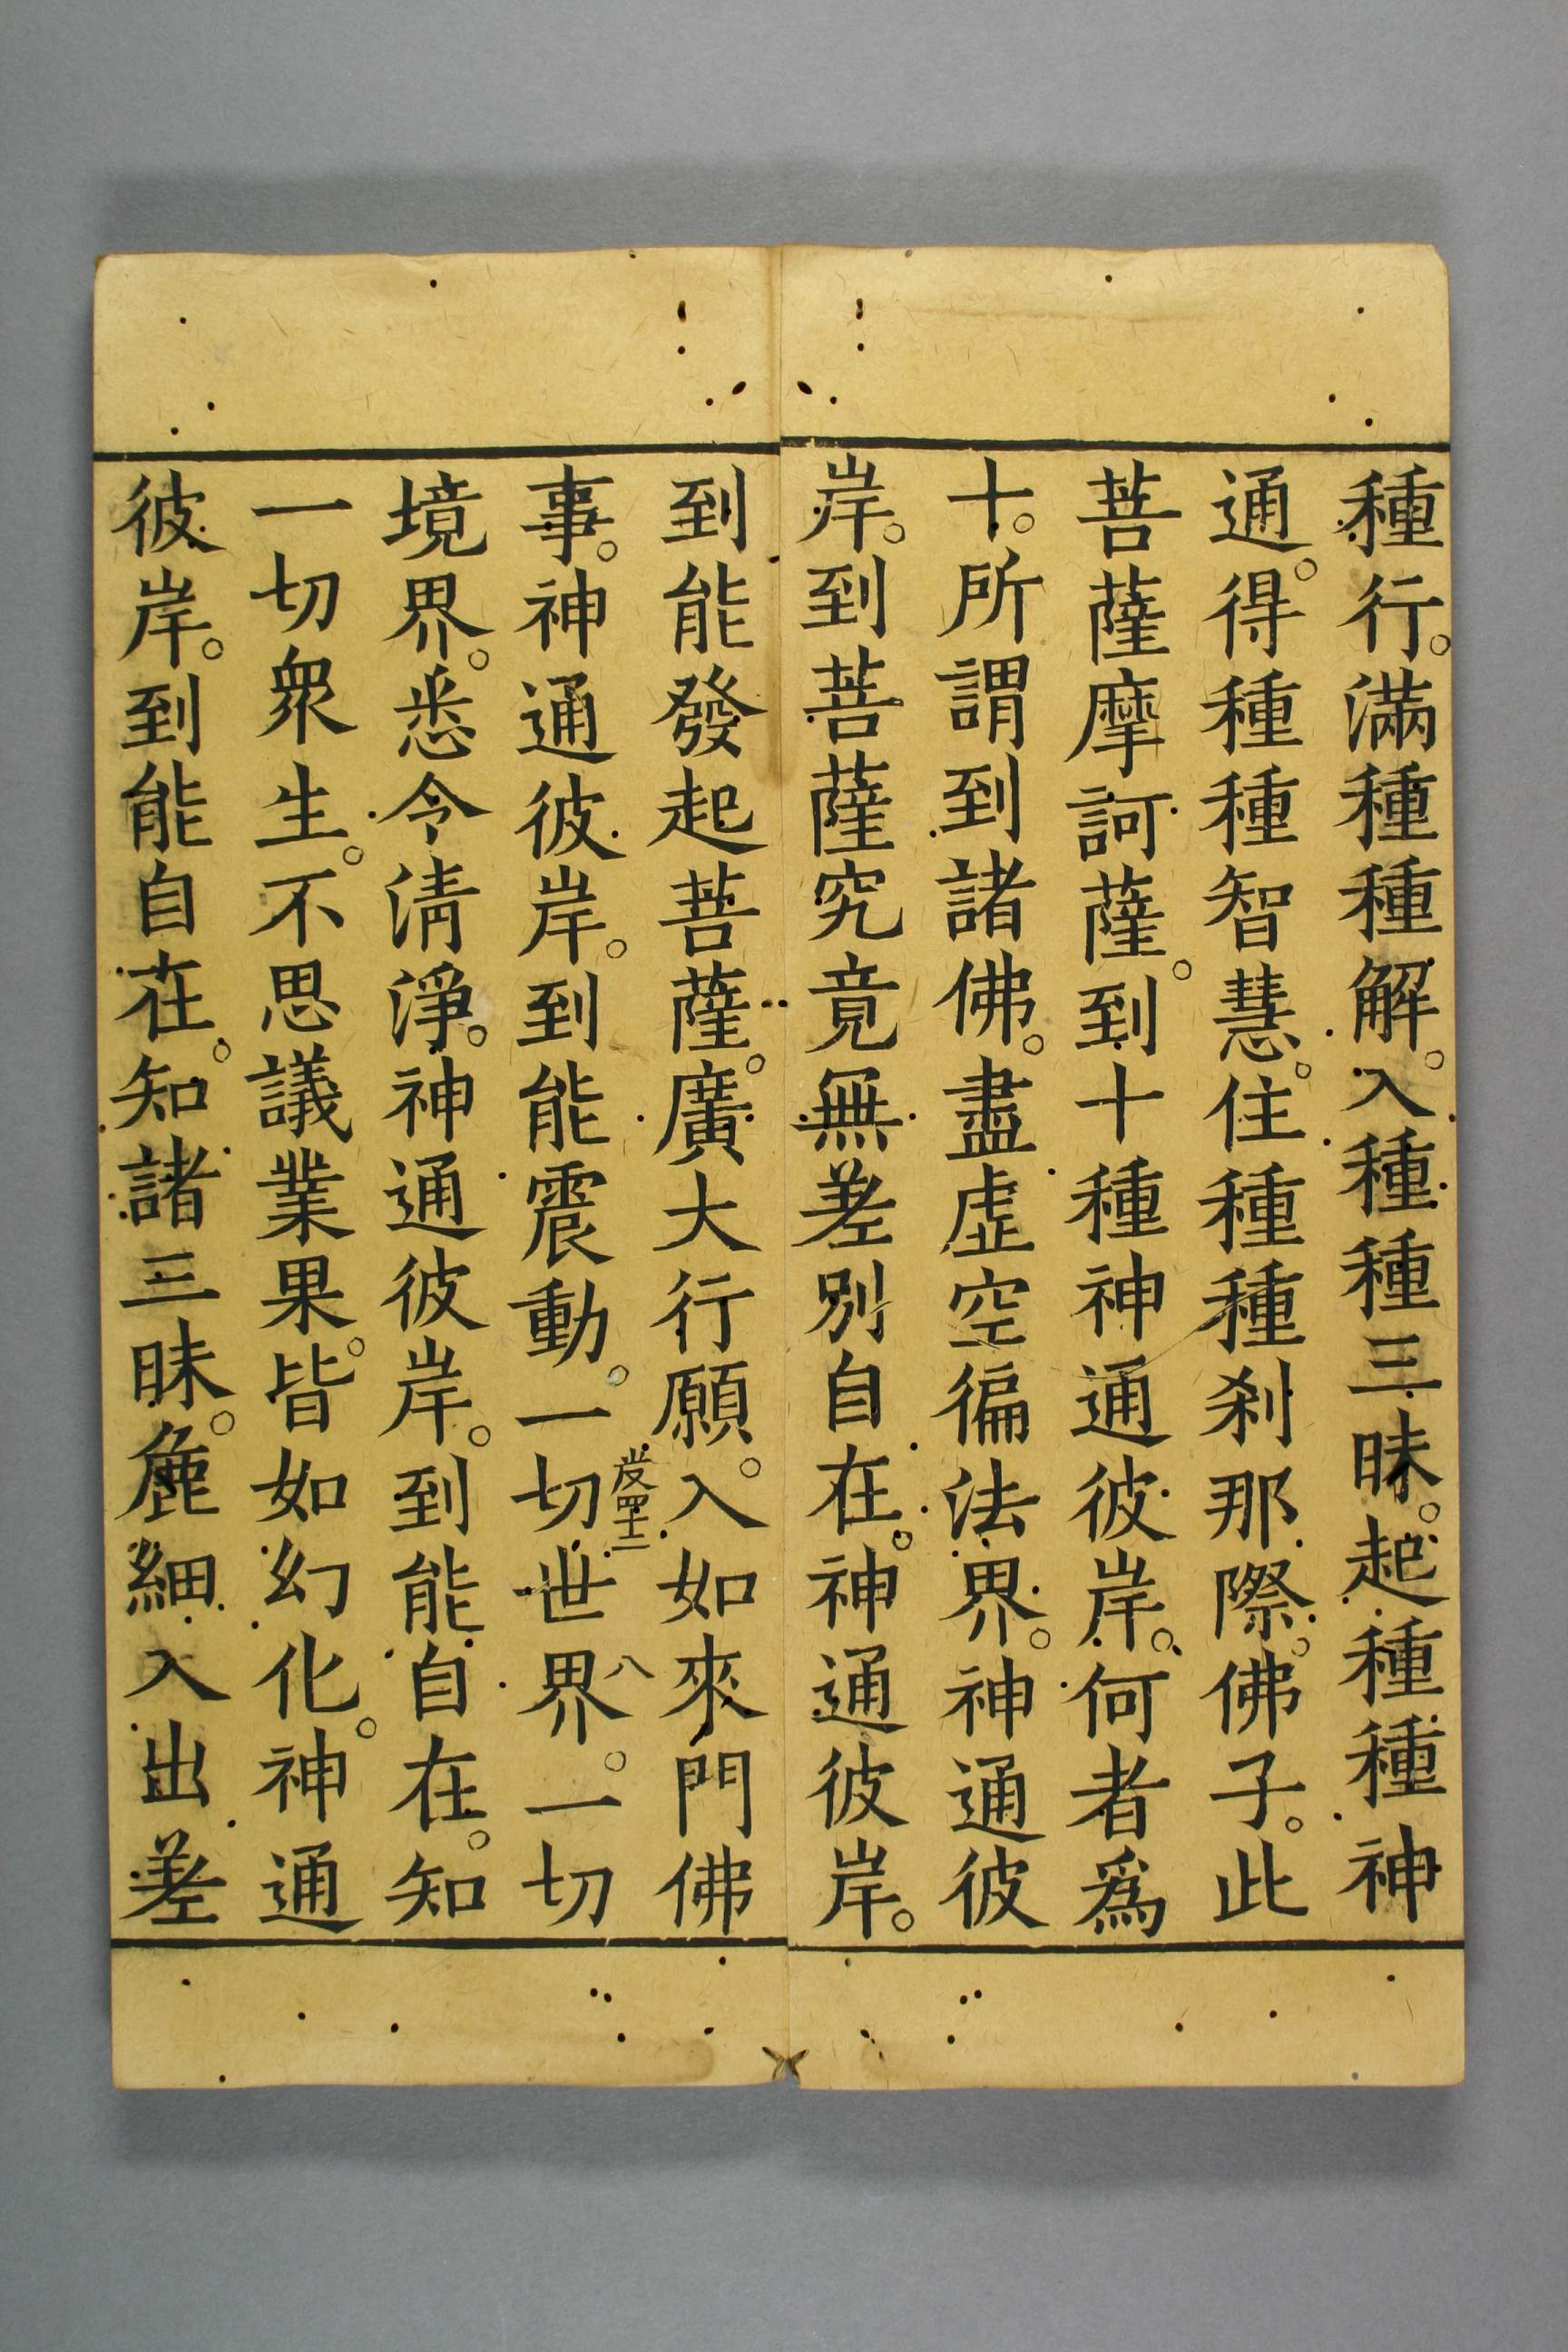 種行。滿種種解。入種種三昧。起種種神
通。得種種智慧。住種種刹那際。佛子。此
菩薩摩訶薩。到十種神通彼岸。何者爲
十。所謂到諸佛。盡虛空徧法界。神通彼
岸。到菩薩究竟無差別自在。神通彼岸。
到能發起菩薩。廣大行願。入如來門佛
四十二 八
事。神通彼岸。到能震動。一切世界。一切
境界。悉令清淨。神通彼岸。到能自在。知
一切衆生。不思議業果。皆如幻化。神通
彼岸。到能自在。知諸三昧。麁細入出差